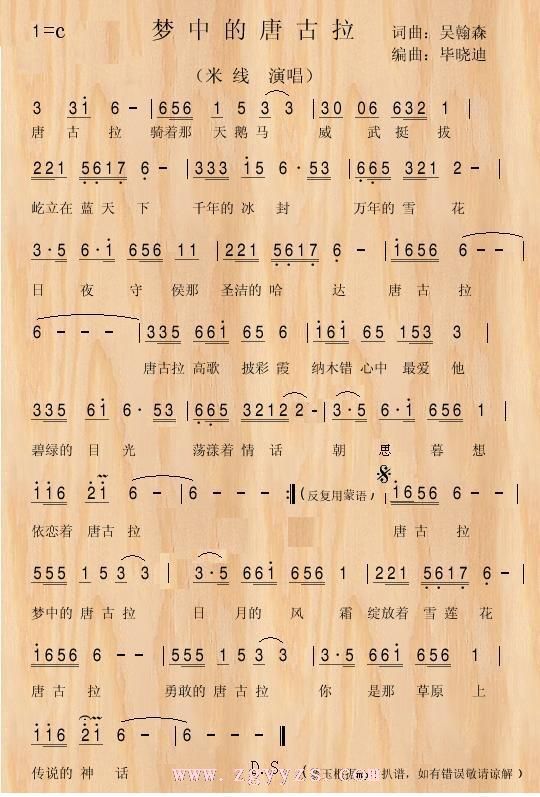 1=c 梦中的唐古拉 词曲：吴翰森
编曲：毕晓迪
（米线 演唱）
3 3i 6 - | 656 1 5 3 3 | 30 06 632 1 |
唐 古 拉 骑着那 天鹅马 威 武挺 拔
221 5617 6 - | 333 i5 6 · 53 | 665 321 2 - |
屹立在 蓝 天 下 千年的 冰 封 万年的 雪 花
3·5 6·i 656 11 | 221 5617 6 - | i656 6 - - |
日 夜 守 侯那 圣洁的 哈 达 唐 古 拉
6 - - - | 335 66i 65 6 | i6i 65 153 3 |
唐古拉 高歌 披彩 霞 纳木错 心中 最爱 他
335 6i 6· 53 | 665 3212 2 - | 3·5 6·i 656 1 |
碧绿的 目 光 荡漾着 情 话 朝 思 暮 想
ii6 2i 6 - | 6 - - - :‖ (反复用蒙语， i656 6 - |
依恋着 唐古 拉 唐 古 拉
555 1 5 3 3 | 3·5 66i 656 1 | 221 5617 6 - |
梦中的 唐 古拉 日 月的 风 霜 绽放着 雪 莲 花
i656 6 - - | 555 15 3 3 | 3·5 66i 656 1 |
唐 古 拉 勇敢的 唐 古拉 你 是那 草原 上
ii6 2i 6 - - ‖
传说的 神 话 D.S 扒谱，如有错误敬请谅解）
www.zgyyzs.com